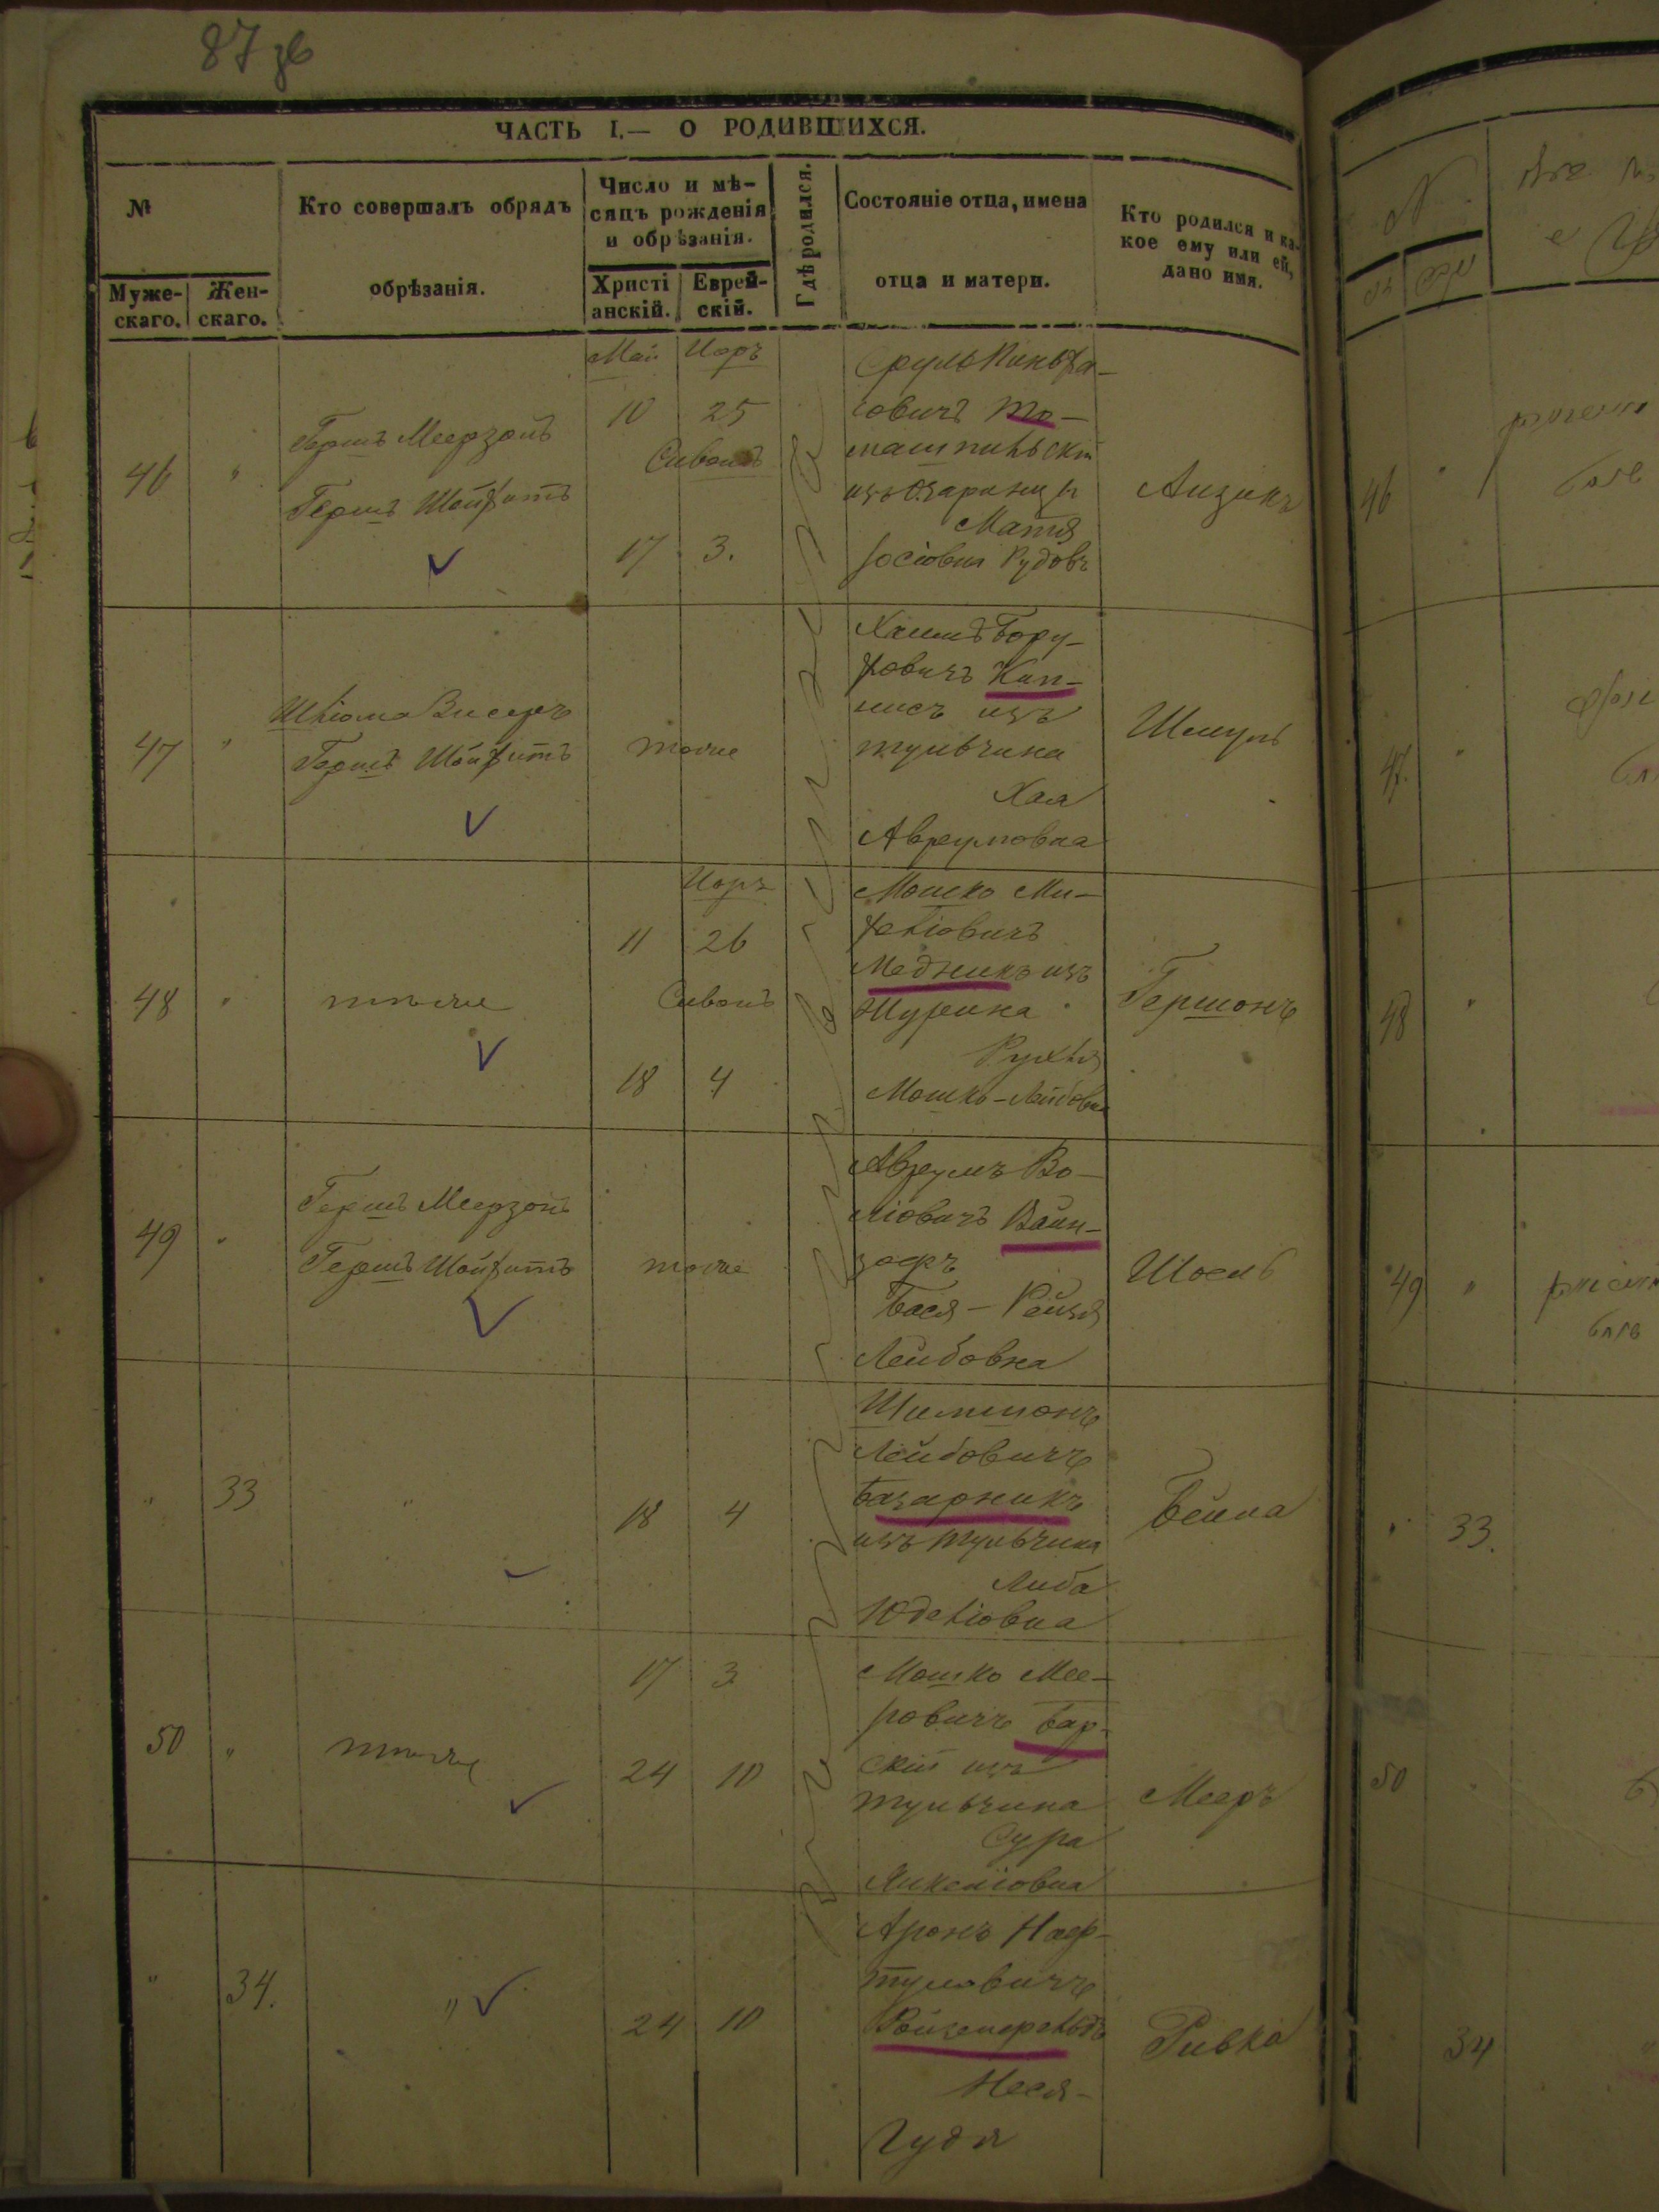 87 зв
ЧАСТЬ I.— О РОДИВШИХСЯ.
№
Муже-
скаго.
Жен-
скаго.
Кто совершалъ обрядъ
обрѣзанія.
Число и мѣ-
сяцъ рожденія
и обрѣзанія.
Христі
анскій.
Еврей-
скій.
Гдѣ родился.
Состояніе отца, имена
отца и матери.
Кто родился и ка-
кое ему или ей,
дано имя.
46 "
Гершъ Меерзонъ
Гершъ Шойхитъ
Май Иоръ
10 25
Сивонъ
17 3.
Сруль Пиньха-
совичъ То-
машпильскій
изъ Озаринцы
Матя
Іосіовна Рудовъ
Аизикъ
47 "
Шліома Висеръ
Гершъ Шойхитъ
тоже
Хаимъ Бору-
ховичъ Кип-
нисъ изъ
Тульчина
Хая
Авреумовна
Шмуль
48 "
тоже
Иоръ
11 26
Сивонъ
18 4
Мошко Ми-
хеліовичъ
Медникъ изъ
Рухля
Мошко-Лейбовна
Гершонъ
49 "
Гершъ Меерзонъ
Гершъ Шойхитъ
тоже
Авреумъ Во-
ліовичъ Вайн-
зофъ
Бася - Рейзя
Лейбовна
" 33
"
18 4
Шимшонъ
Лейбовичъ
Базарникъ
изъ Тульчина
Либа
Юделіовна
Бейла
50 "
тоже
17 3
24 10
Мошко Мее-
ровичъ Бар-
скій изъ
Тульчина
Сура
Янкеліовна
Мееръ
" 34.
"
24 10
Аронъ Наф-
туловичъ
Неся-
Гудя
Ривка
46 "
47. "
48 "
49 "
" 33.
50
34